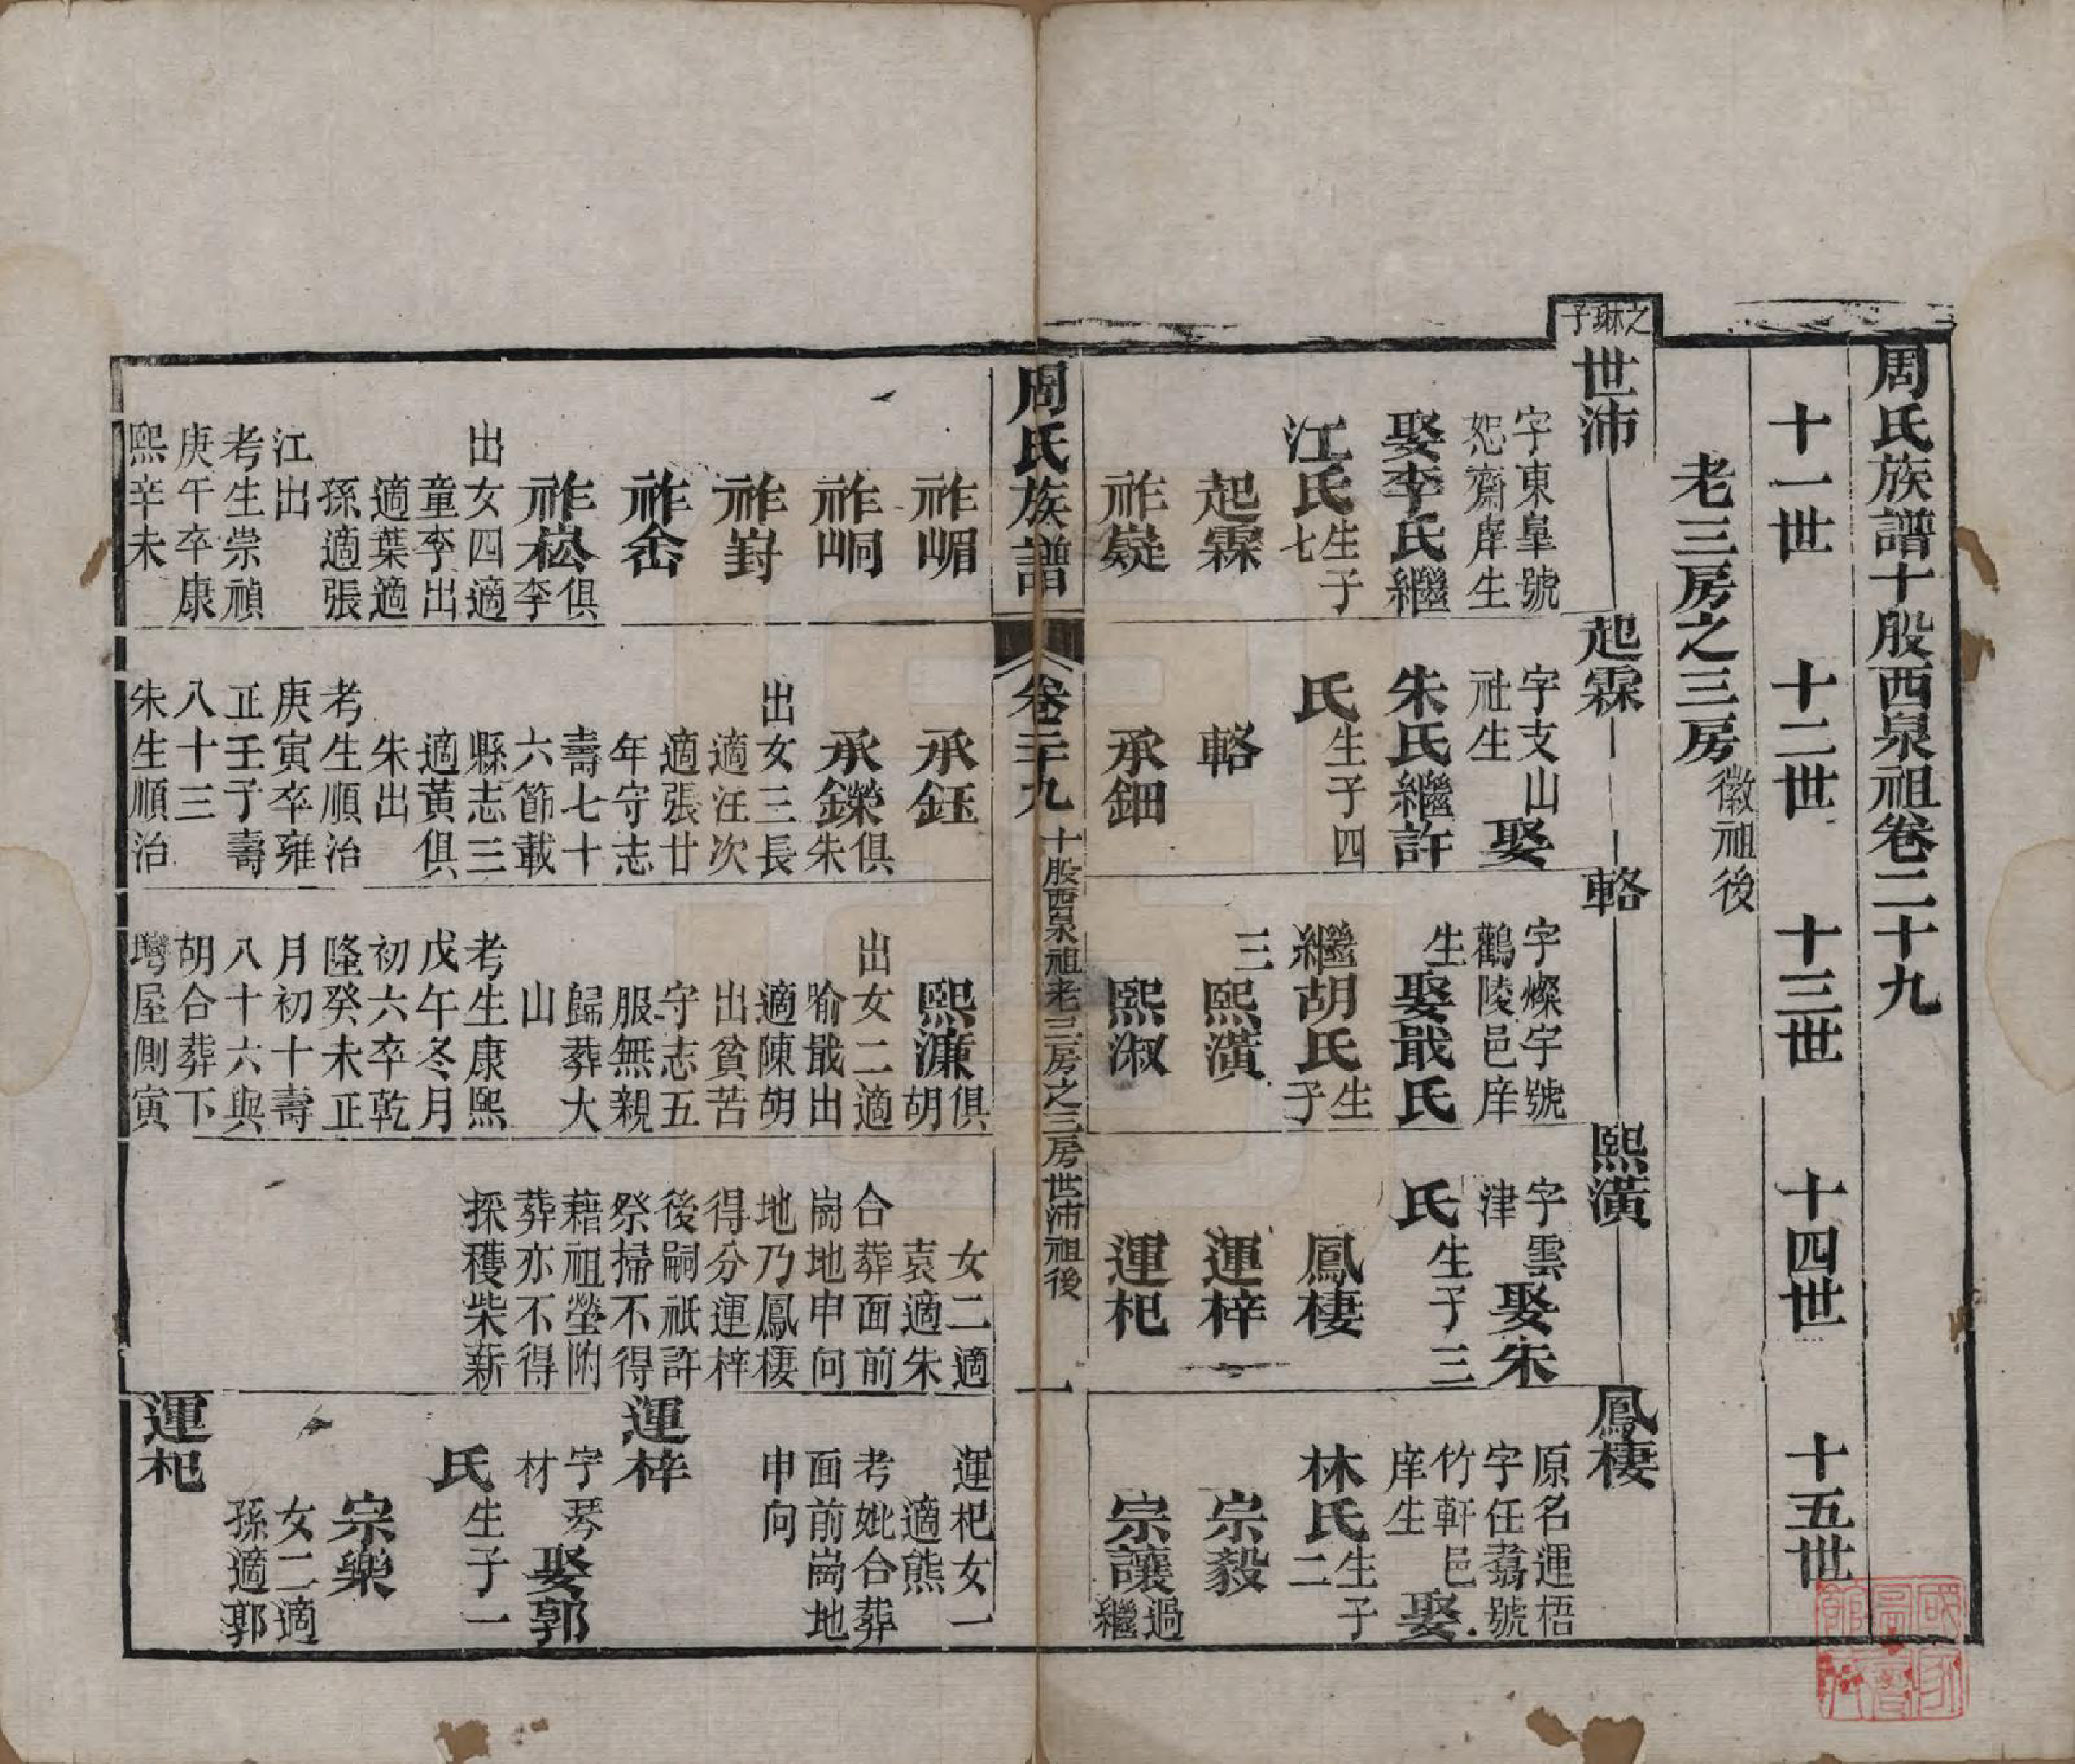 周氏族譜十股西泉祖卷二十九
十一世
十二世
十三世
十四世
十五世
老三房之三房徽祖後
之琳子
世沛
字東皐號
恕齋庠生
娶李氏繼
江氏生子
七
起霖
祚嶷
起霖
字支山
祉生
娶
朱氏繼許
氏生子四
輅
承鈿
輅
字燦宇號
鶴陵邑庠
生娶戢氏
繼胡氏生子
三
熙潢
熙淑
熙潢
字雲
津
娶朱
氏生子三
鳳棲
運梓
運杞
鳳棲
原名運梧
字任蒭號
竹軒邑
庠生娶
林氏生子
二
宗毅
宗讓過繼
周氏族譜
卷二十九
十股西泉祖老三房之三房世沛祖後
一
祚嵋
祚峒
祚崶
祚嵞
祚崧俱李
出女四適
童李出
適葉適
孫適張
江出
考生崇禎
庚午卒康
熙辛未
承鈺
承鑅俱朱
出女三長
適汪次
適張廿
年守志
壽七十
六節載
縣志三
適黃俱
朱出
考生順治
庚寅卒雍
正壬子壽
八十三
朱生順治
熙濂俱胡
出女二適
喻戢出
適陳胡
出貧苦
守志五
服無親
歸葬大
山
考生康熙
戊午冬月
初六卒乾
隆癸未正
月初十壽
八十六與
胡合葬下
塆屋側寅
女二適
袁適朱
合葬面前
崗地申向
地乃鳳棲
得分運梓
後嗣祇許
祭掃不得
藉祖塋附
葬亦不得
採穫柴薪
運杞女一
適熊
考妣合葬
面前崗地
申向
運梓
字琴
材
娶郭
氏生子一
宗樂
女二適
孫適郭
運杞
國立北平圖書館藏